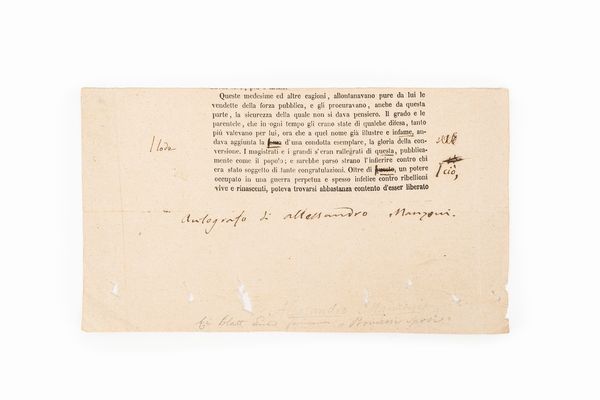 Queste medesime ed altre cagioni, allontanavano pure da lui le
vendette della forza pubblica, e gli procuravano, anche da questa
parte, la sicurezza della quale non si dava pensiero. Il grado e le
parentele, che in ogni tempo gli erano state di qualche difesa, tanto
più valevano per lui, ora che a quel nome già illustre e infame, an-
dava aggiunta la d'una condotta esemplare, la gloria della con-
versione. I magistrati e i grandi s'eran rallegrati di questa, pubblica-
mente come il popolo; e sarebbe parso strano l'infierire contro chi
era stato soggetto di tante congratulazioni. Oltre di un potere
occupato in una guerra perpetua e spesso infelice contro ribellioni
vive e rinascenti, poteva trovarsi abbastanza contento d'esser liberato
lode
ciò,
Autografo di Allessandro Manzoni.
Alessandro
Blatt
Promessi sposi